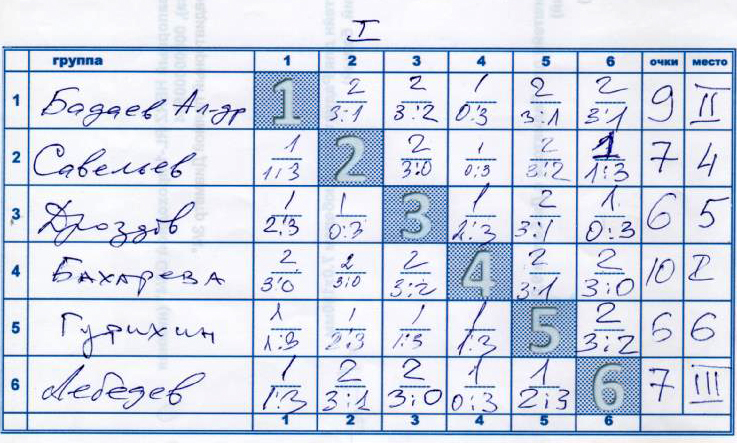 I
группа 1 2 3 4 5 6 очки место
1 Бадаев Ал-др 1 2 3:1 2 3:2 1 0:3 2 3:1 2 3:1 9 II
2 Савельев 1 1:3 2 2 3:0 1 0:3 2 3:2 1 1:3 7 4
3 Дроздов 1 2:3 1 0:3 3 1 2:3 2 3:1 1 0:3 6 5
4 Бахарева 2 3:0 2 3:0 2 3:2 4 2 3:1 2 3:0 10 I
5 Гутихин 1 1:3 1 2:3 1 1:3 1 1:3 5 2 3:2 6 6
6 Лебедев 1 1:3 2 3:1 2 3:0 1 0:3 1 2:3 6 7 III
1 2 3 4 5 6